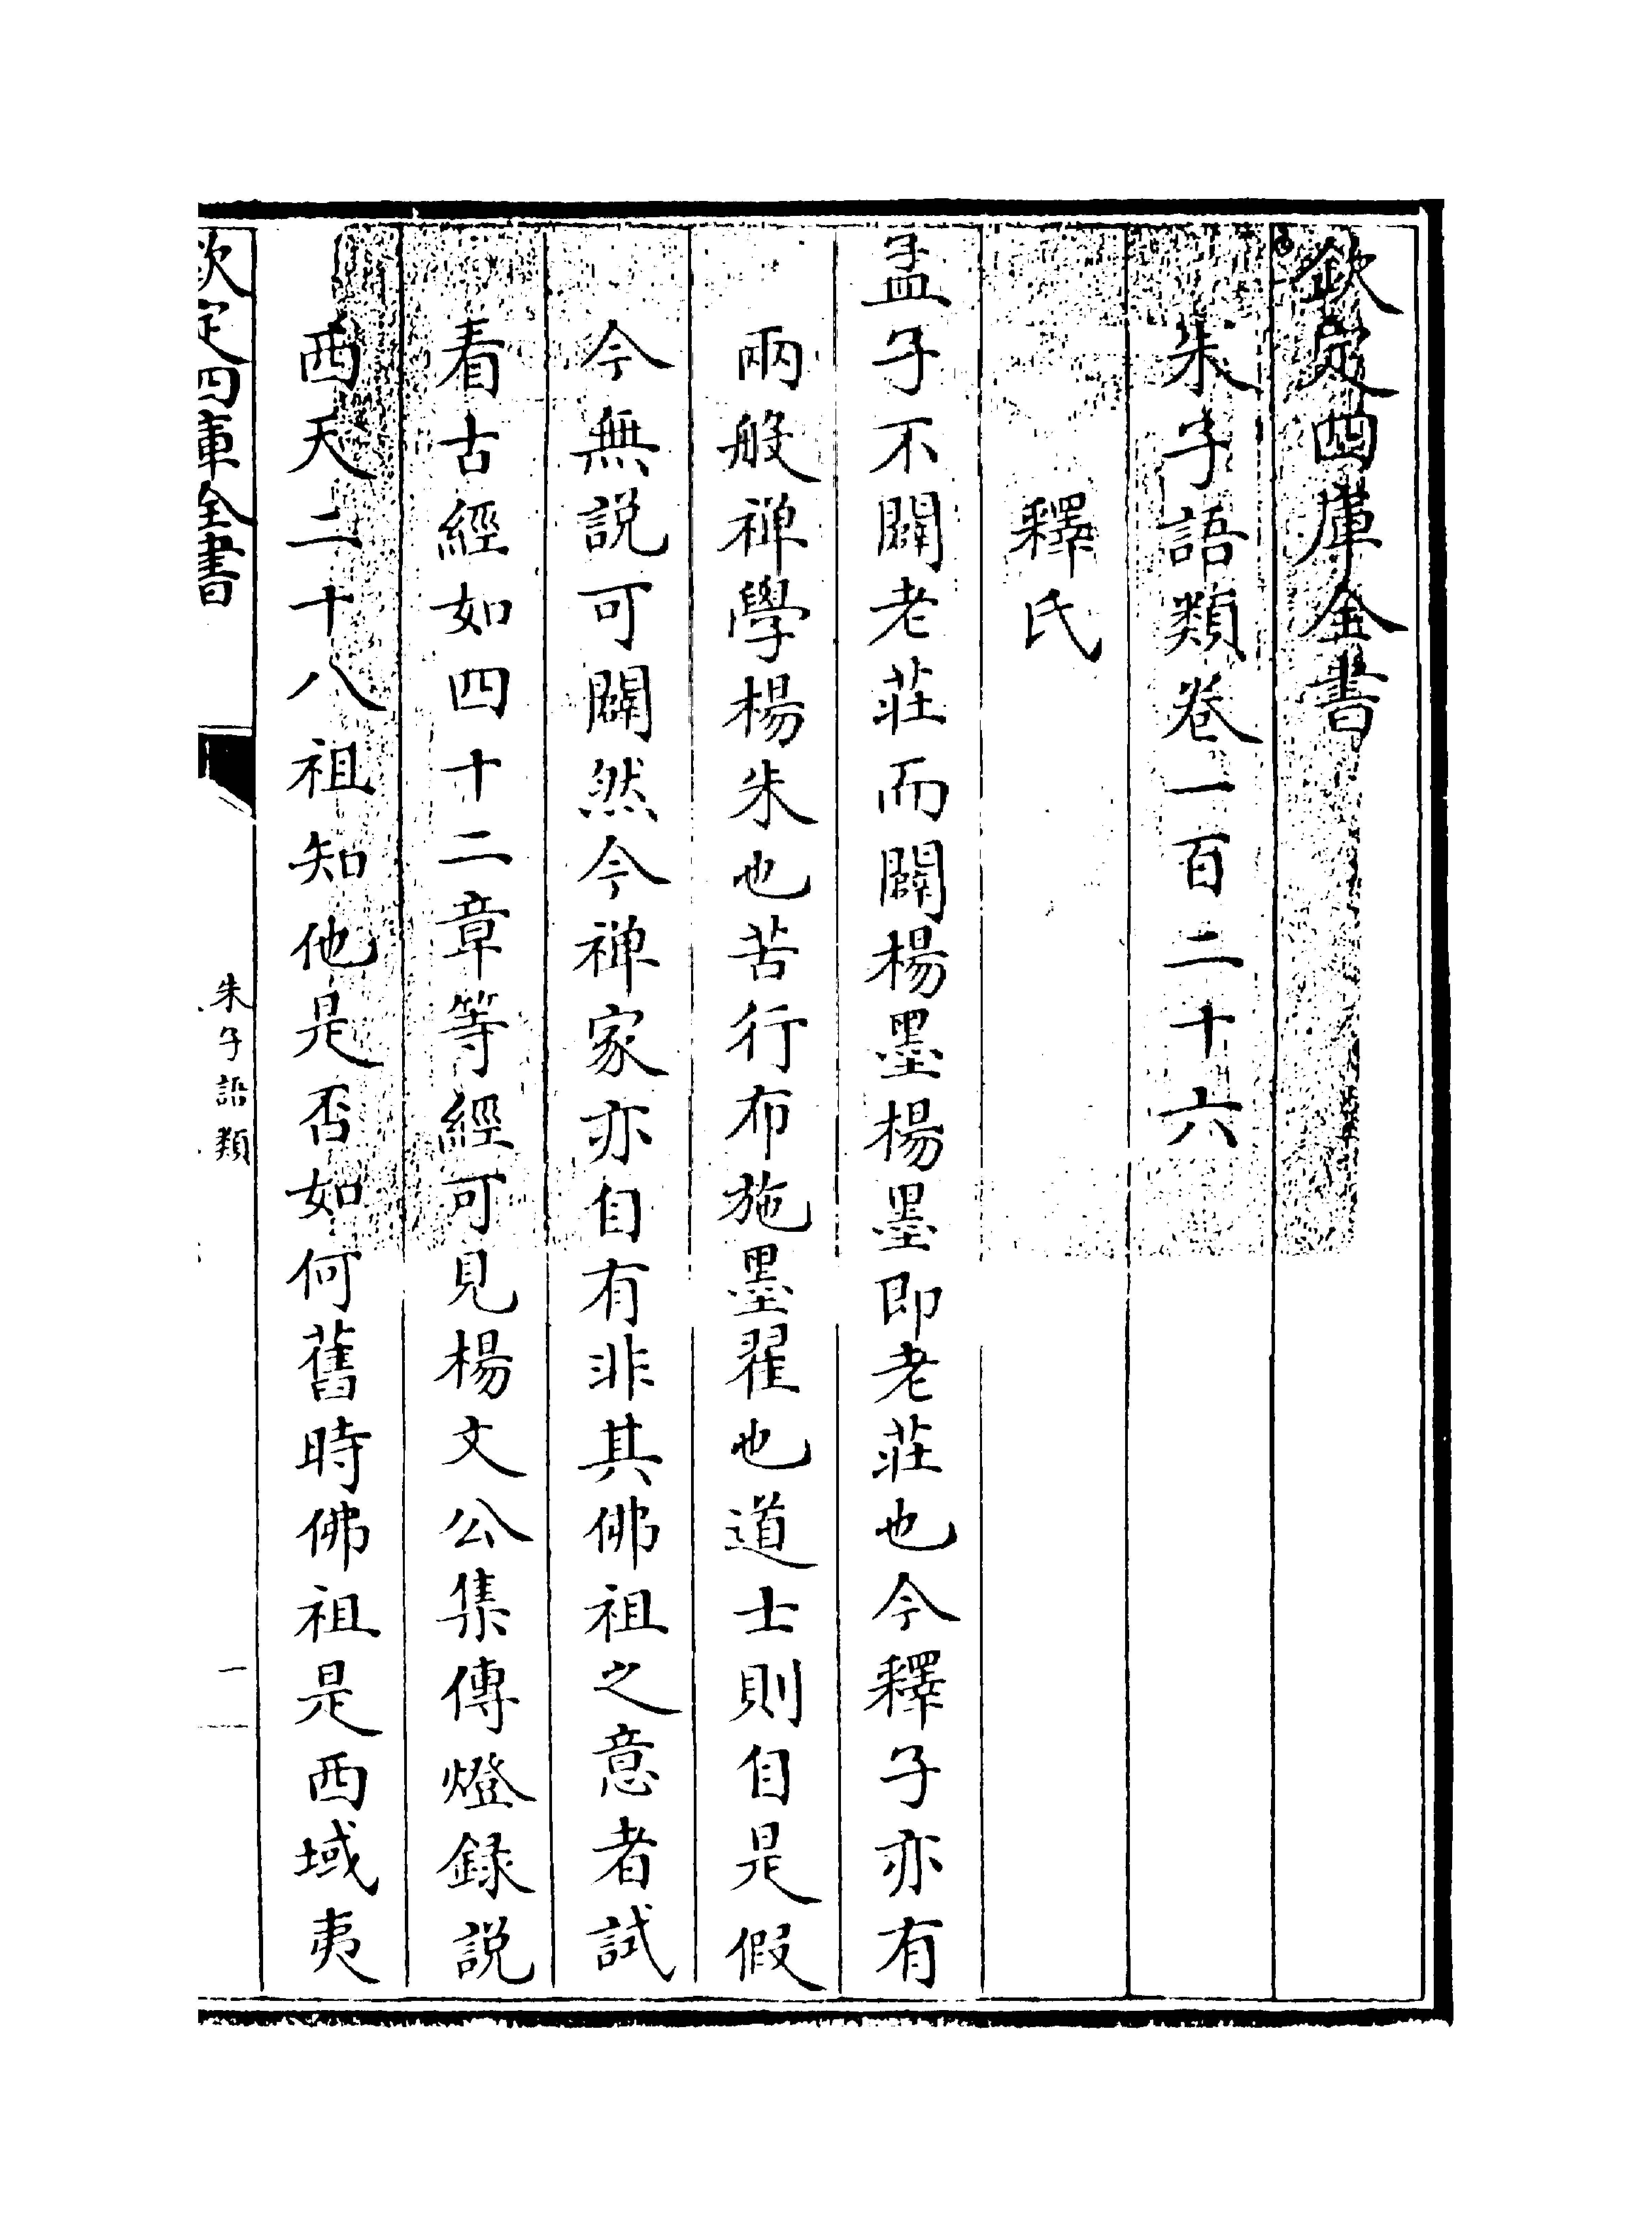 欽定四庫全書
朱子語類卷一百二十六
釋氏
孟子不闢老莊而闢楊墨楊墨即老莊也今釋子亦有
兩般禪學楊朱也苦行布施墨翟也道士則自是假
今無説可闢然今禪家亦自有非其佛祖之意者試
看古經如四十二章等經可見楊文公集傳燈錄説
西天二十八祖知他是否如何舊時佛祖是西域夷
欽定四庫全書
朱子語類
一